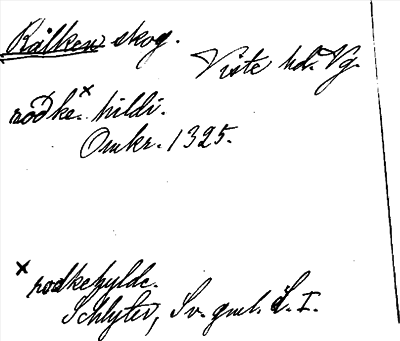 Kålken skog.
Viste hd. Vg.
rodke x hildi.
Omkr. 1325.
x rodkehylde.
Schlyter, Sv. gml. L. I.